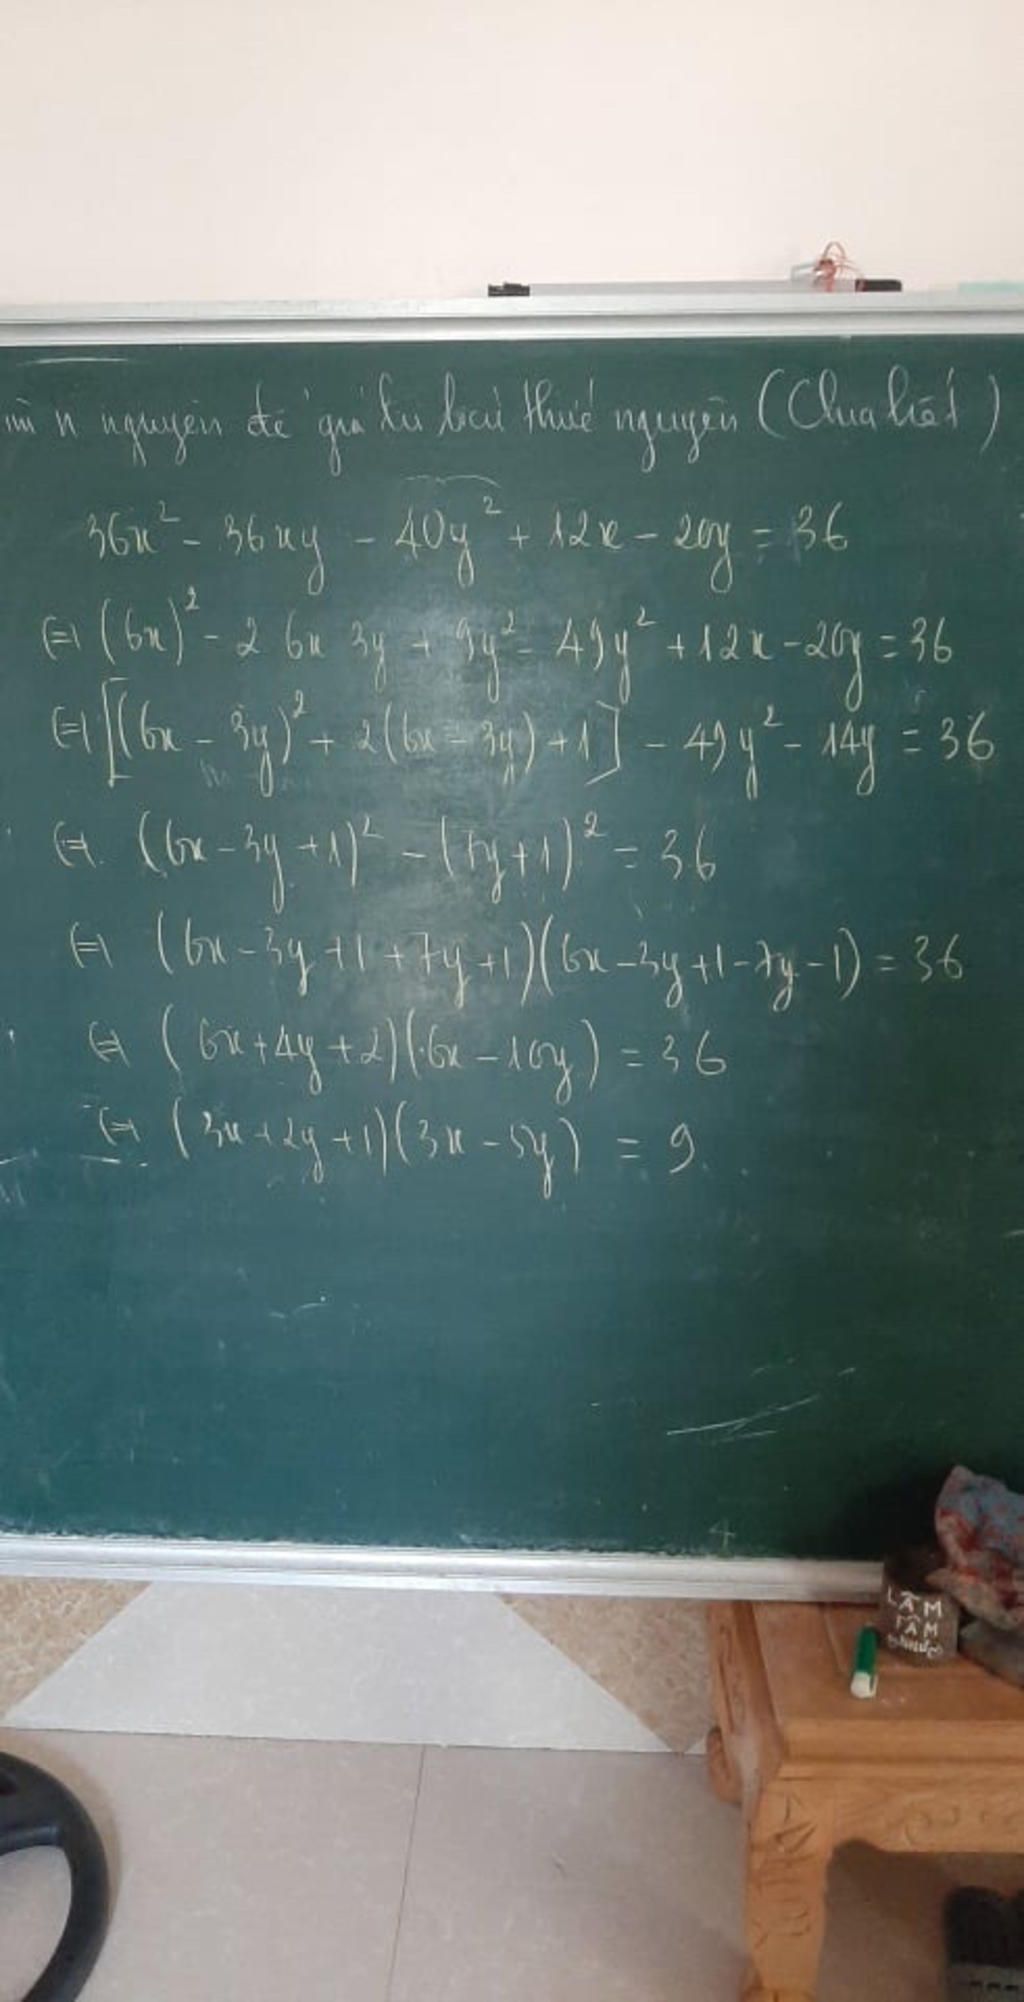 n nguyên để giá trị biểu thức nguyên (Chia hết)
36x² - 36xy - 40y² + 12x - 20y = 36
(=) (6x)² - 2 6x 3y + 9y² - 49y² + 12x - 20y = 36
(=) [(6x - 3y)² + 2(6x - 3y) + 1] - 49y² - 14y = 36
(=) (6x - 3y + 1)² - (7y + 1)² = 36
(=) (6x - 3y + 1 + 7y + 1)(6x - 3y + 1 - 7y - 1) = 36
(=) (6x + 4y + 2)(6x - 10y) = 36
(=) (3x + 2y + 1)(3x - 5y) = 9
LÂM
TÂM